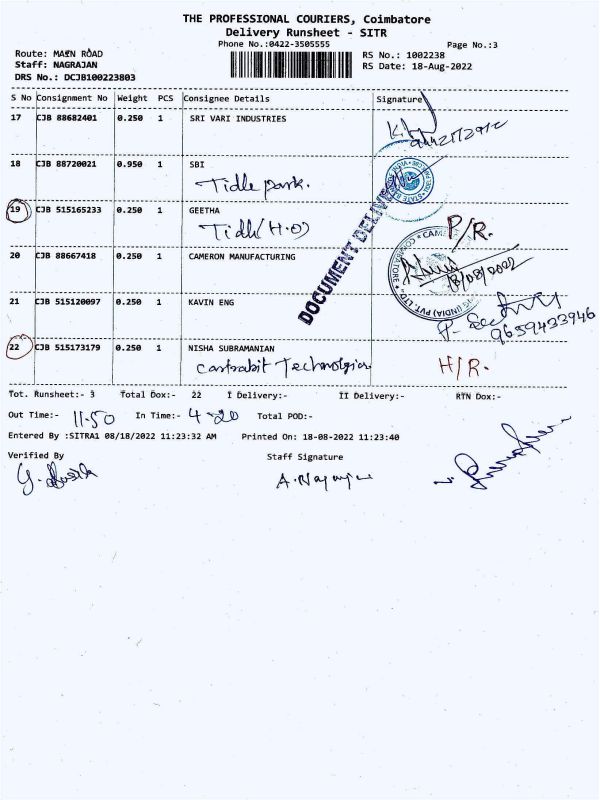 THE PROFESSIONAL COURIERS, Coimbatore
Delivery Runsheet - SITR
Phone No.:0422-3505555 Page No.:3
Route: MAIN ROAD RS No.: 1002238
Staff: NAGRAJAN RS Date: 18-Aug-2022
DRS No.: DCJB100223803
S No Consignment No Weight PCS Consignee Details Signature
17 CJB 88682401 0.250 1 SRI VARI INDUSTRIES
18 CJB 88720021 0.950 1 SBI
Tidle park.
19 CJB 515165233 0.250 1 GEETHA
Tidle (H.O) P/R.
DOCUMENT DELIVE
20 CJB 88667418 0.250 1 CAMERON MANUFACTURING
18/08/2022
21 CJB 515120097 0.250 1 KAVIN ENG
9659433946
22 CJB 515173179 0.250 1 NISHA SUBRAMANIAN
Technologies H/R.
Tot. Runsheet:- 3 Total Dox:- 22 I Delivery:- II Delivery:- RTN Dox:-
Out Time:- 11.50 In Time:- 4.20 Total POD:-
Entered By :SITRA1 08/18/2022 11:23:32 AM Printed On: 18-08-2022 11:23:40
Verified By Staff Signature